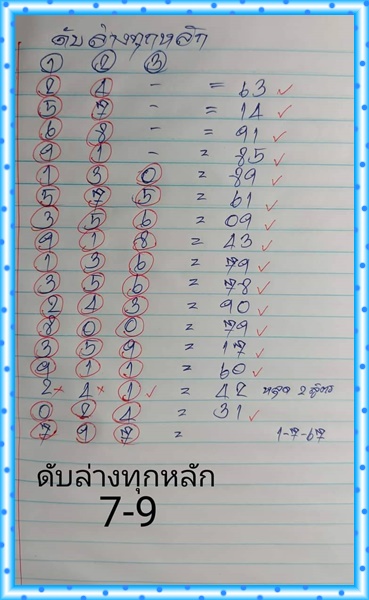 ดับล่างทุกหลัก
1 2 3
2 4 - = 63 ✓
5 7 - = 14 ✓
6 8 - = 91 ✓
9 1 - = 85 ✓
1 3 0 = 89 ✓
5 7 5 = 61 ✓
3 5 6 = 09 ✓
9 1 8 = 43 ✓
1 3 6 = 79 ✓
3 5 6 = 78 ✓
2 4 3 = 90 ✓
8 0 0 = 79 ✓
3 5 9 = 17 ✓
9 1 1 = 60 ✓
2 × 4 × 1 ✓ = 42 หลุด 2 สูตร
0 2 4 = 31 ✓
7 9 7 = 1-7-67
ดับล่างทุกหลัก
7-9